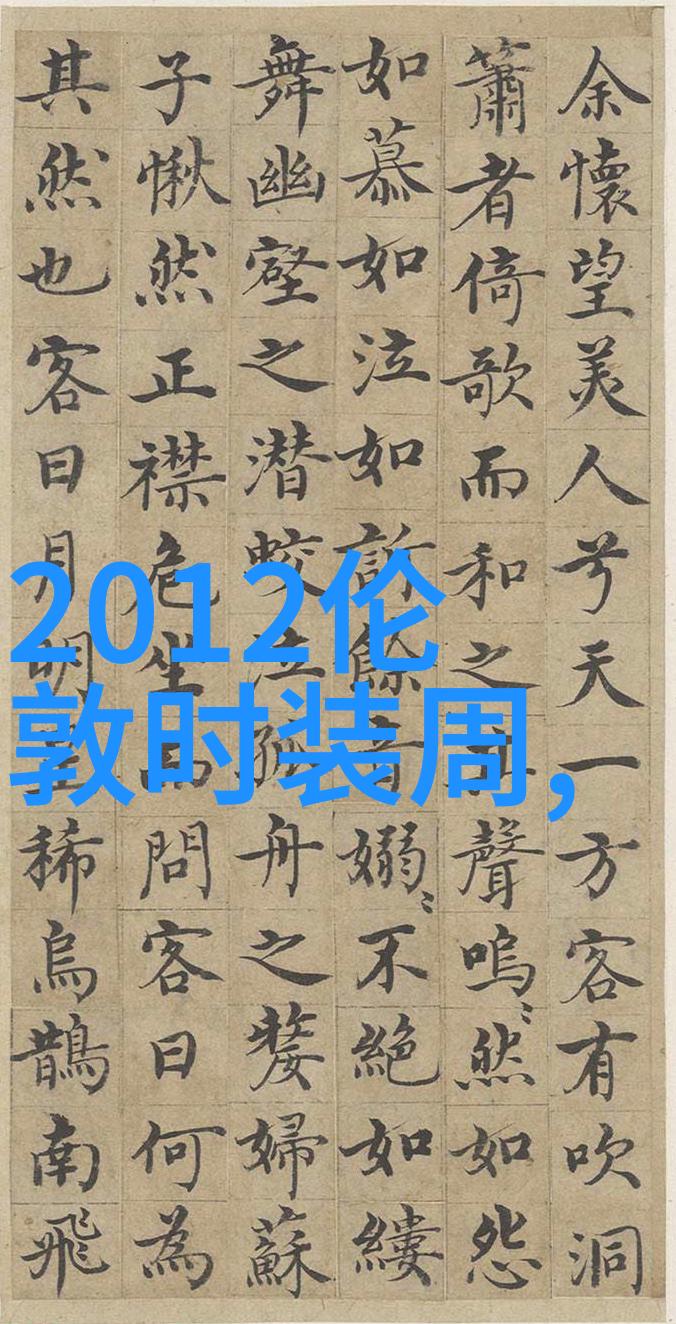 余懷望美人兮天一方客有吹洞
簫者倚歌而和之其聲嗚〻然如怨
如慕如泣如訴餘音嫋〻不絕如縷
舞幽壑之潜蛟泣孤舟之嫠婦蘇
子愀然正襟危坐而問客曰何為
其然也客曰月明星稀烏鵲南飛
2012伦
敦时装周,